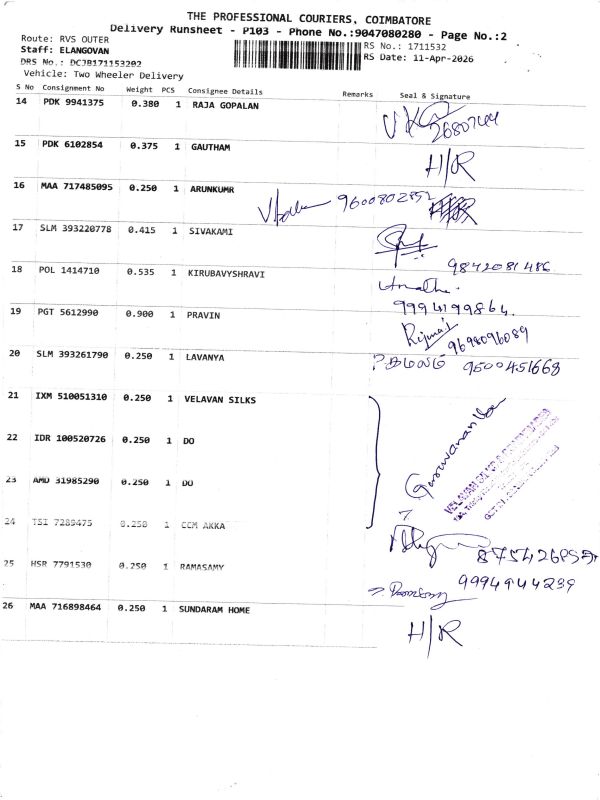 THE PROFESSIONAL COURIERS, COIMBATORE
Delivery Runsheet - P103 - Phone No.:9047080280 - Page No.:2
Route: RVS OUTER
RS No.: 1711532
Staff: ELANGOVAN
RS Date: 11-Apr-2026
DRS No.: DCJB171153202
Vehicle: Two Wheeler Delivery
S No Consignment No Weight PCS Consignee Details Remarks Seal & Signature
14 PDK 9941375 0.380 1 RAJA GOPALAN
15 PDK 6102854 0.375 1 GAUTHAM H/R
16 MAA 717485095 0.250 1 ARUNKUMR
17 SLM 393220778 0.415 1 SIVAKAMI
9842081486
18 POL 1414710 0.535 1 KIRUBAVYSHRAVI
9994199864.
19 PGT 5612990 0.900 1 PRAVIN
9698096089
20 SLM 393261790 0.250 1 LAVANYA 9500451668
21 IXM 510051310 0.250 1 VELAVAN SILKS
22 IDR 100520726 0.250 1 DO
23 AMD 31985290 0.250 1 DO
24 TSI 7289475 0.250 1 CCM AKKA
25 HSR 7791530 0.250 1 RAMASAMY
9994944239
26 MAA 716898464 0.250 1 SUNDARAM HOME
H/R